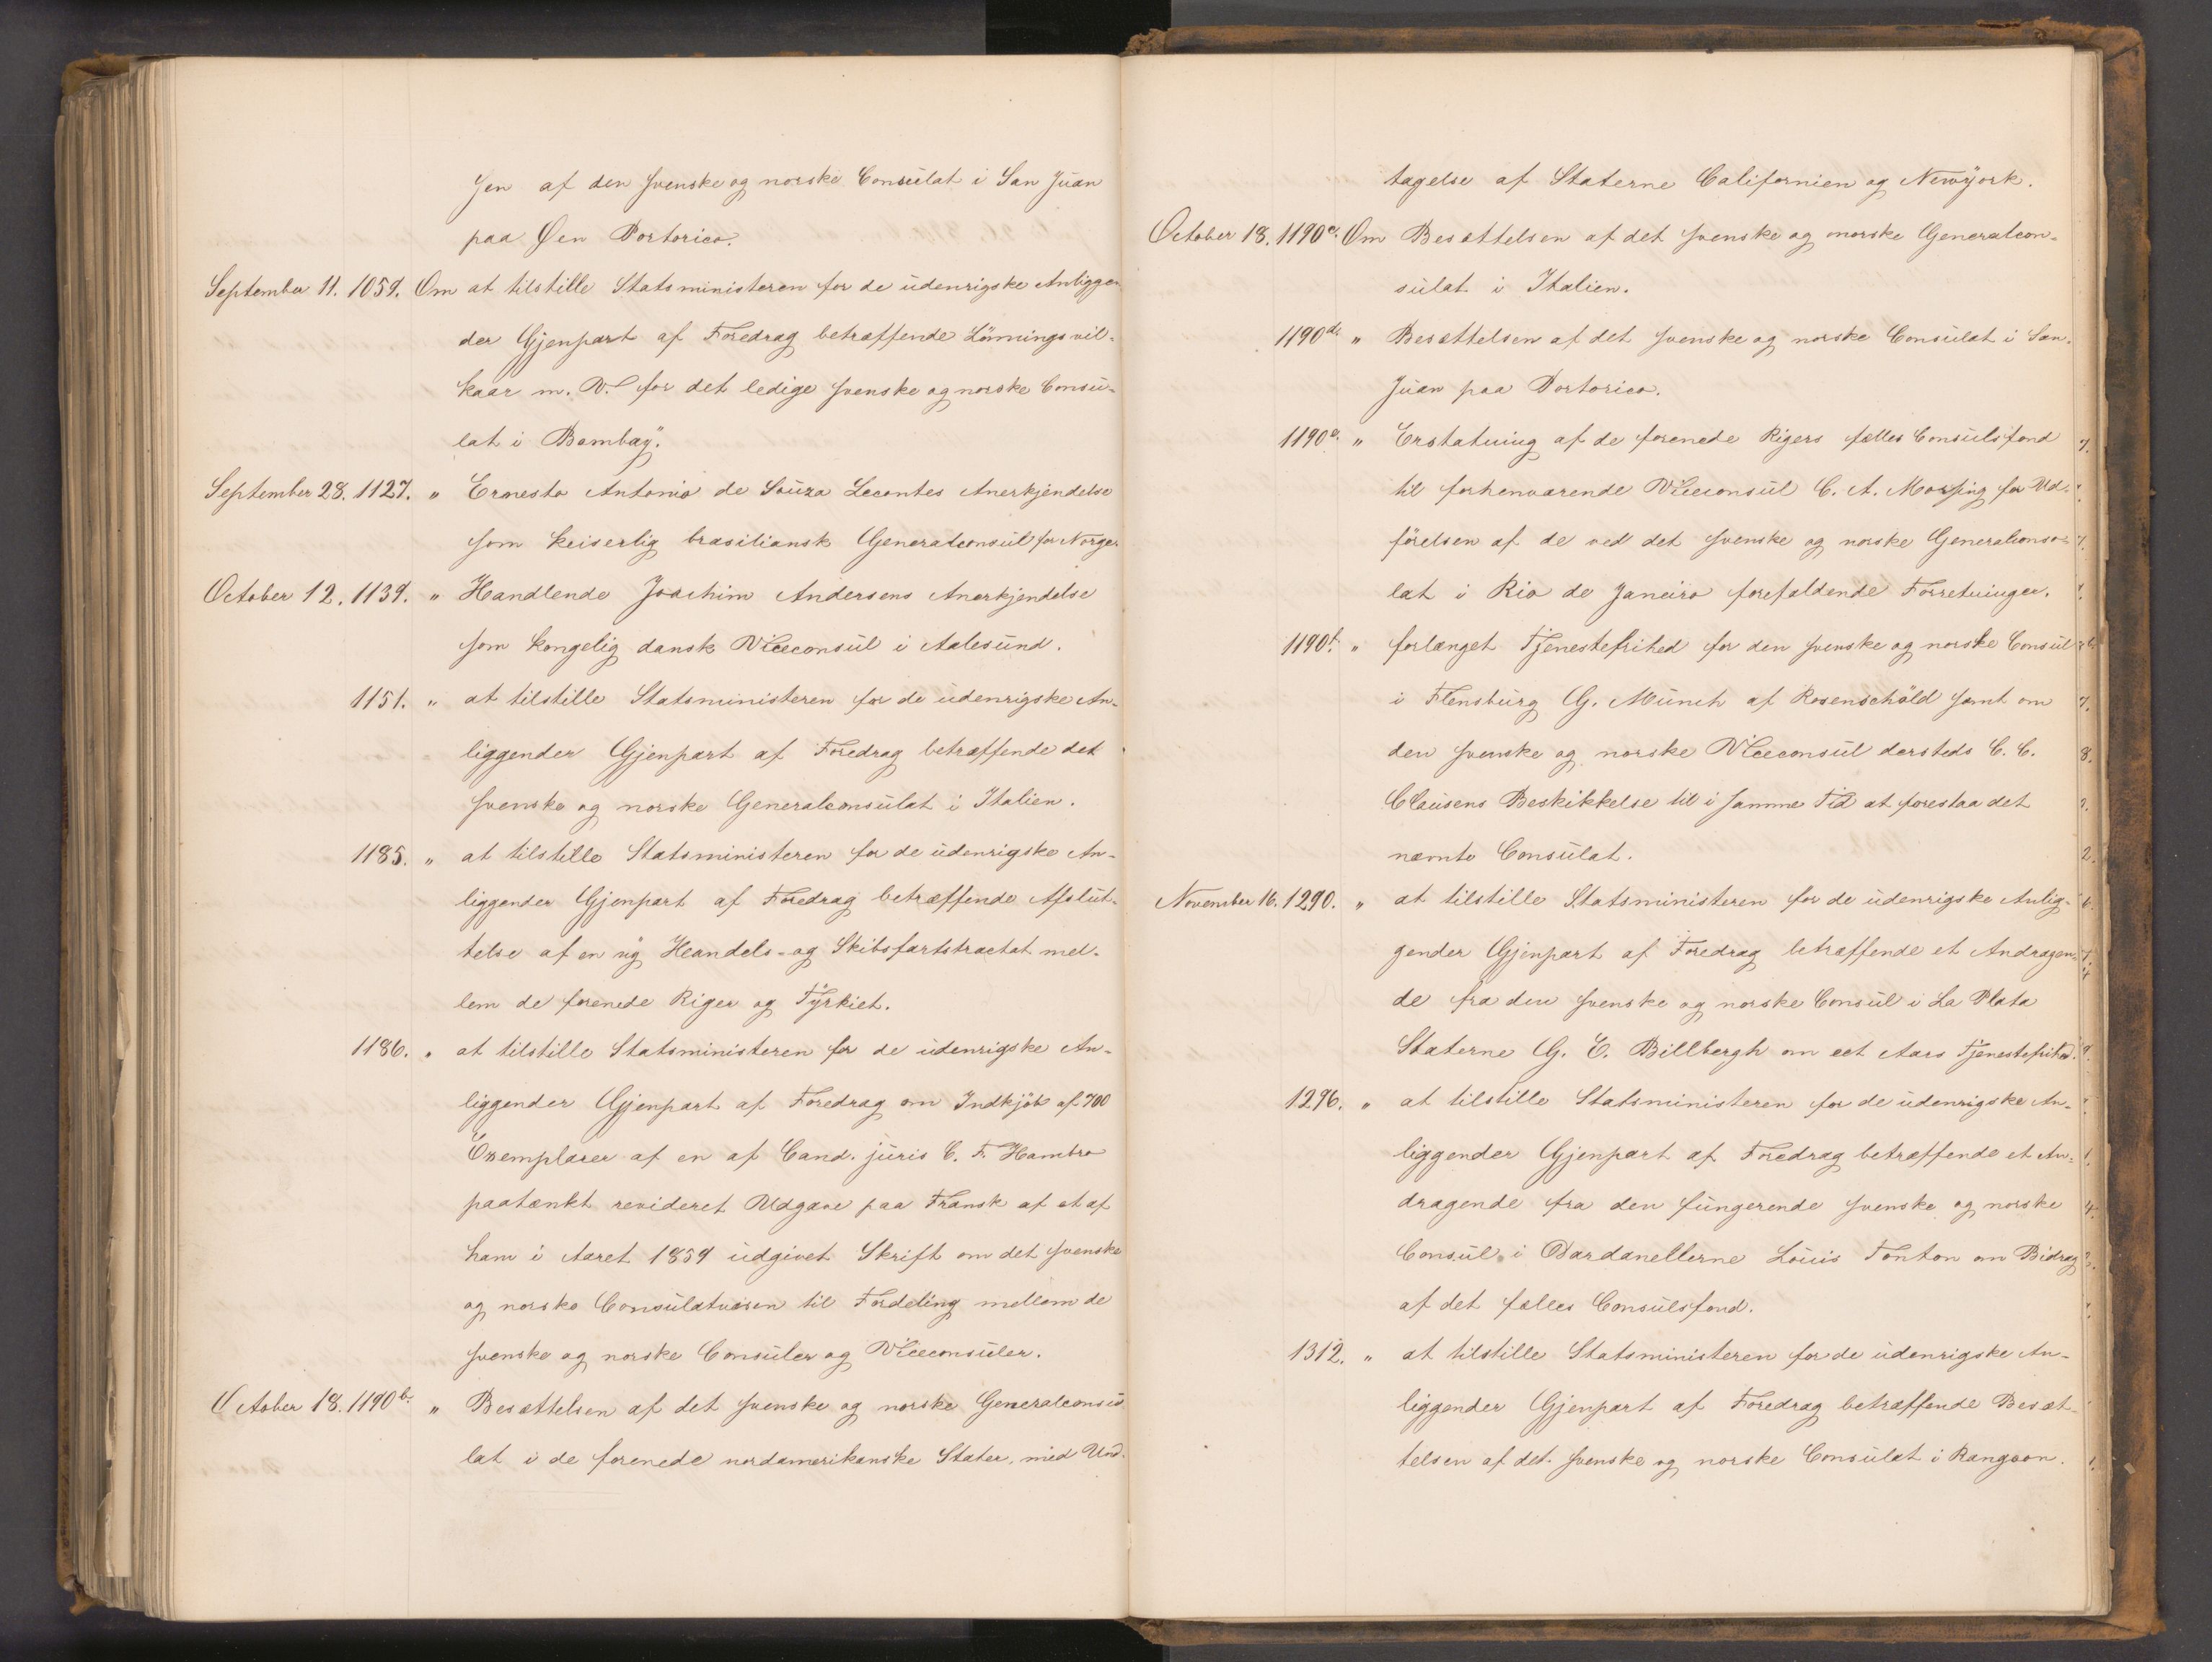 gen af den svenske og norske Consulat i San Juan
paa Øen Portorico.
September 11. 1059. Om at tilstille Statsministeren for de udenrigske Anliggen
der Gjenpart af Foredrag betræffende Lönningsvil-
kaar m. V. for det ledige svenske og norske Consu-
lat i Bombay.
September 28. 1127. " Ernesto Antonio de Souza Lecontes Anerkjendelse
som keiserlig brasiliansk Generalconsul for Norge.
October 12. 1139. " Handlende Joachim Andersens Anerkjendelse
som kongelig dansk Viceconsul i Aalesund.
1151. " at tilstille Statsministeren for de udenrigske An-
liggender Gjenpart af Foredrag betræffende det
svenske og norske Generalconsulat i Italien.
1185. " at tilstille Statsministeren for de udenrigske An-
liggender Gjenpart af Foredrag betræffende Afslut-
telse af en ny Handels- og Skibsfartstractat mel-
lem de forenede Riger og Tyrkiet.
1186. " at tilstille Statsministeren for de udenrigske An-
liggender Gjenpart af Foredrag om Indkjöb af 700
Exemplarer af en af Cand. juris C. F. Hambro
paatænkt revideret Udgave paa Fransk af et af
ham i Aaret 1859 udgivet Skrift om det svenske
og norske Consulatvæsen til Fordeling mellem de
svenske og norske Consuler og Viceconsuler.
October 18. 1190 b. " Besættelsen af det svenske og norske Generalconsu
lat i de forenede nordamerikanske Stater, med Und-
tagelse af Staterne Californien og Newyork.
October 18. 1190 c. Om Besættelsen af det svenske og norske Generalcon-
sulat i Italien.
1190 d. " Besættelsen af det svenske og norske Consulat i San
Juan paa Portorico.
1190 e. " Erstatning af de forenede Rigers fælles Consulsfond
til forhenværende Viceconsul C. A. Morsing for Ud-
förelsen af de ved det svenske og norske Generalconsu-
lat i Rio de Janeiro forefaldende Forretninger.
1190 f. " forlænget Tjenestefrihed for den svenske og norske Consul
i Flensburg G. Münch af Rosenschöld samt om
den svenske og norske Viceconsul dersteds C. C.
Clausens Beskikkelse til i samme Tid at forestaa det
nævnte Consulat.
November 16. 1290. " at tilstille Statsministeren for de udenrigske Anlig-
gender Gjenpart af Foredrag betræffende et Andragen-
de fra den svenske og norske Consul i La Plata
Staterne G. E. Billbergh om eet Aars Tjenestefrihed.
1296. " at tilstille Statsministeren for de udenrigske An-
liggender Gjenpart af Foredrag betræffende et An-
dragende fra den fungerende svenske og norske
Consul i Dardanellerne Louis Tonton om Bidrag
af det fælles Consulsfond.
1312. " at tilstille Statsministeren for de udenrigske An-
liggender Gjenpart af Foredrag betræffende Besæt-
telsen af det svenske og norske Consulat i Rangoon.